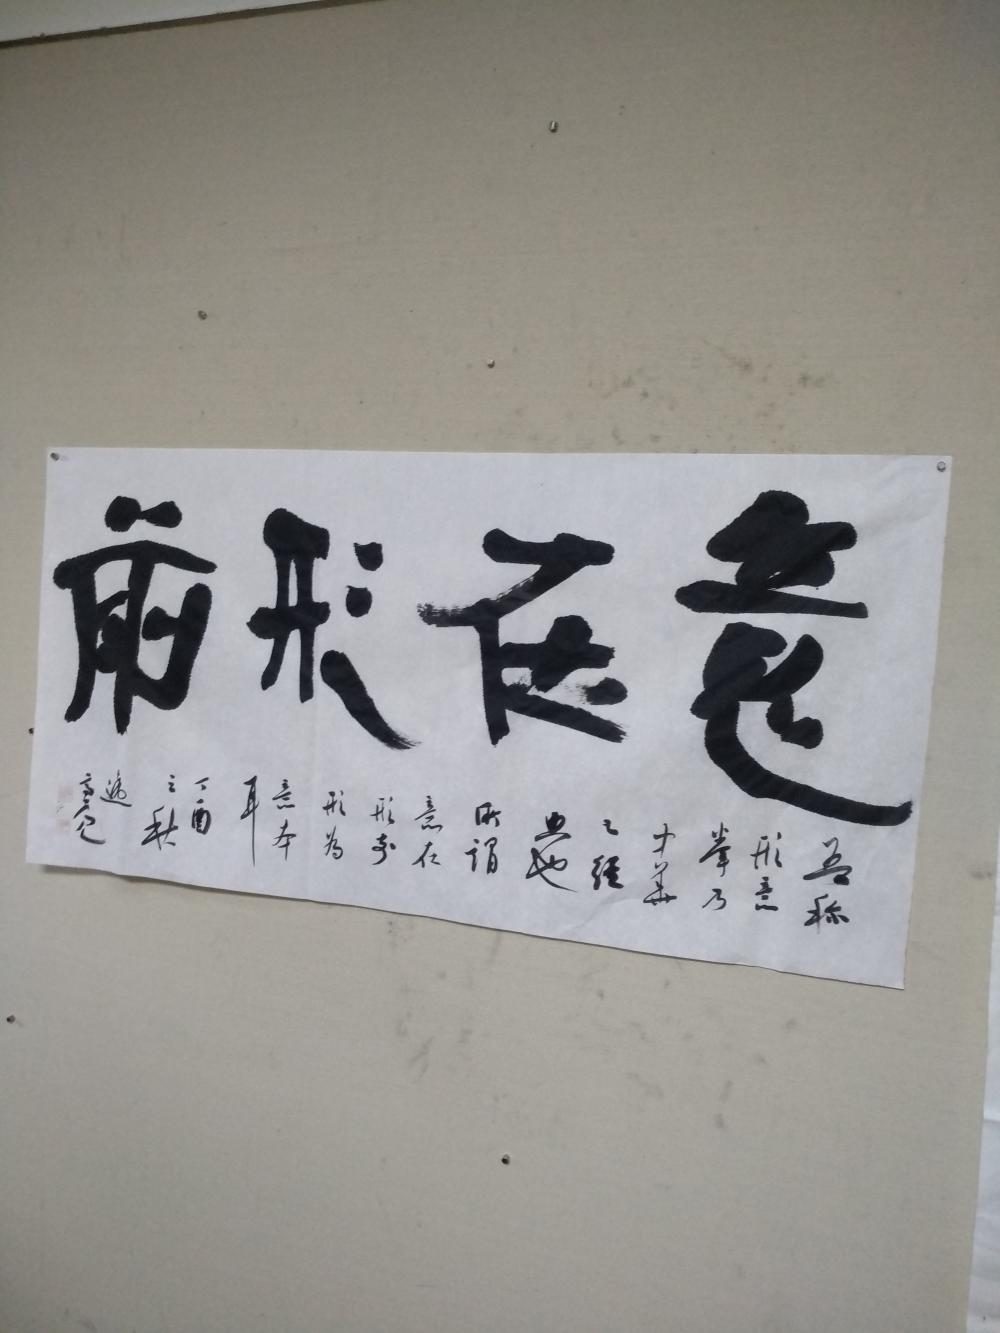 意在形前
吾称
形意
拳乃
中华
之经
典也
所谓
意在
形前
形为
意本
耳
丁酉
之秋